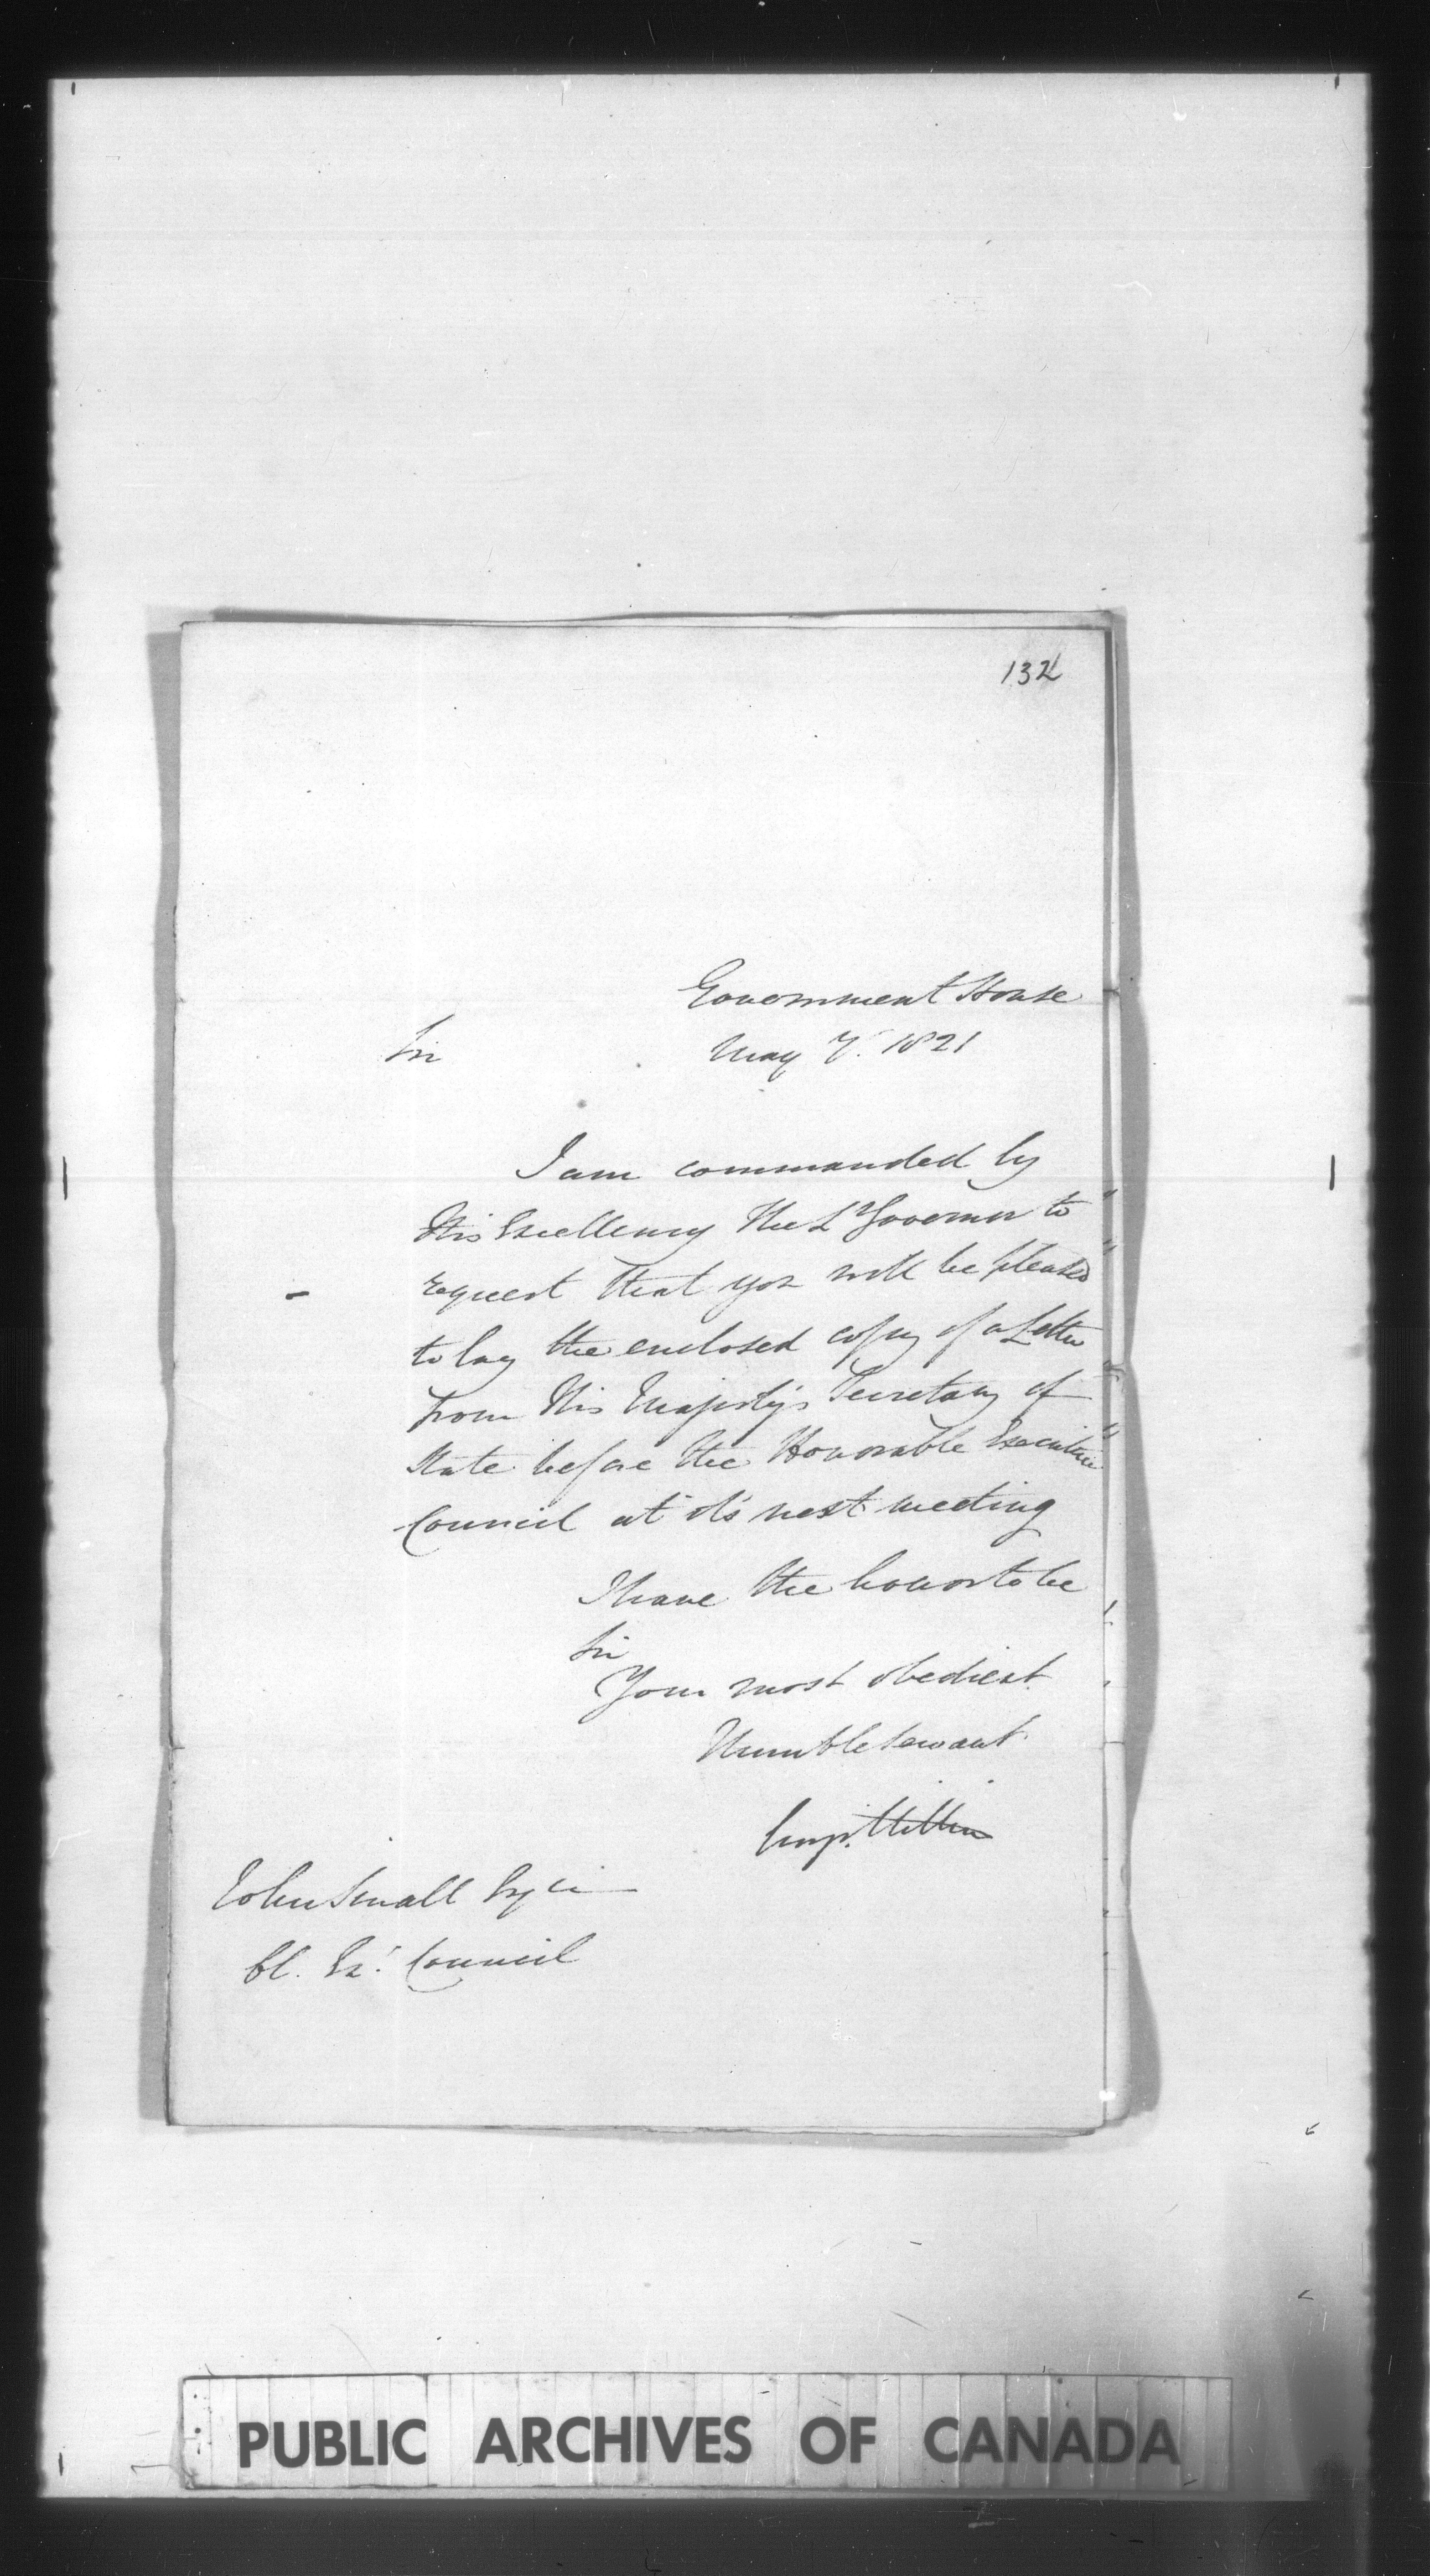 132
Government House
Sir
May 7. 1821
I am commanded by
His Excellency The Lt Governor to
request that you will be pleased
to lay the enclosed copy of a Letter
from His Majesty's Secretary of
State before the Honorable Executive
Council at it's next meeting
I have the honor to be
Sir
Your most obedient
Humble Servant
John Small Esqre
Cl. Ex. Council
PUBLIC ARCHIVES OF CANADA